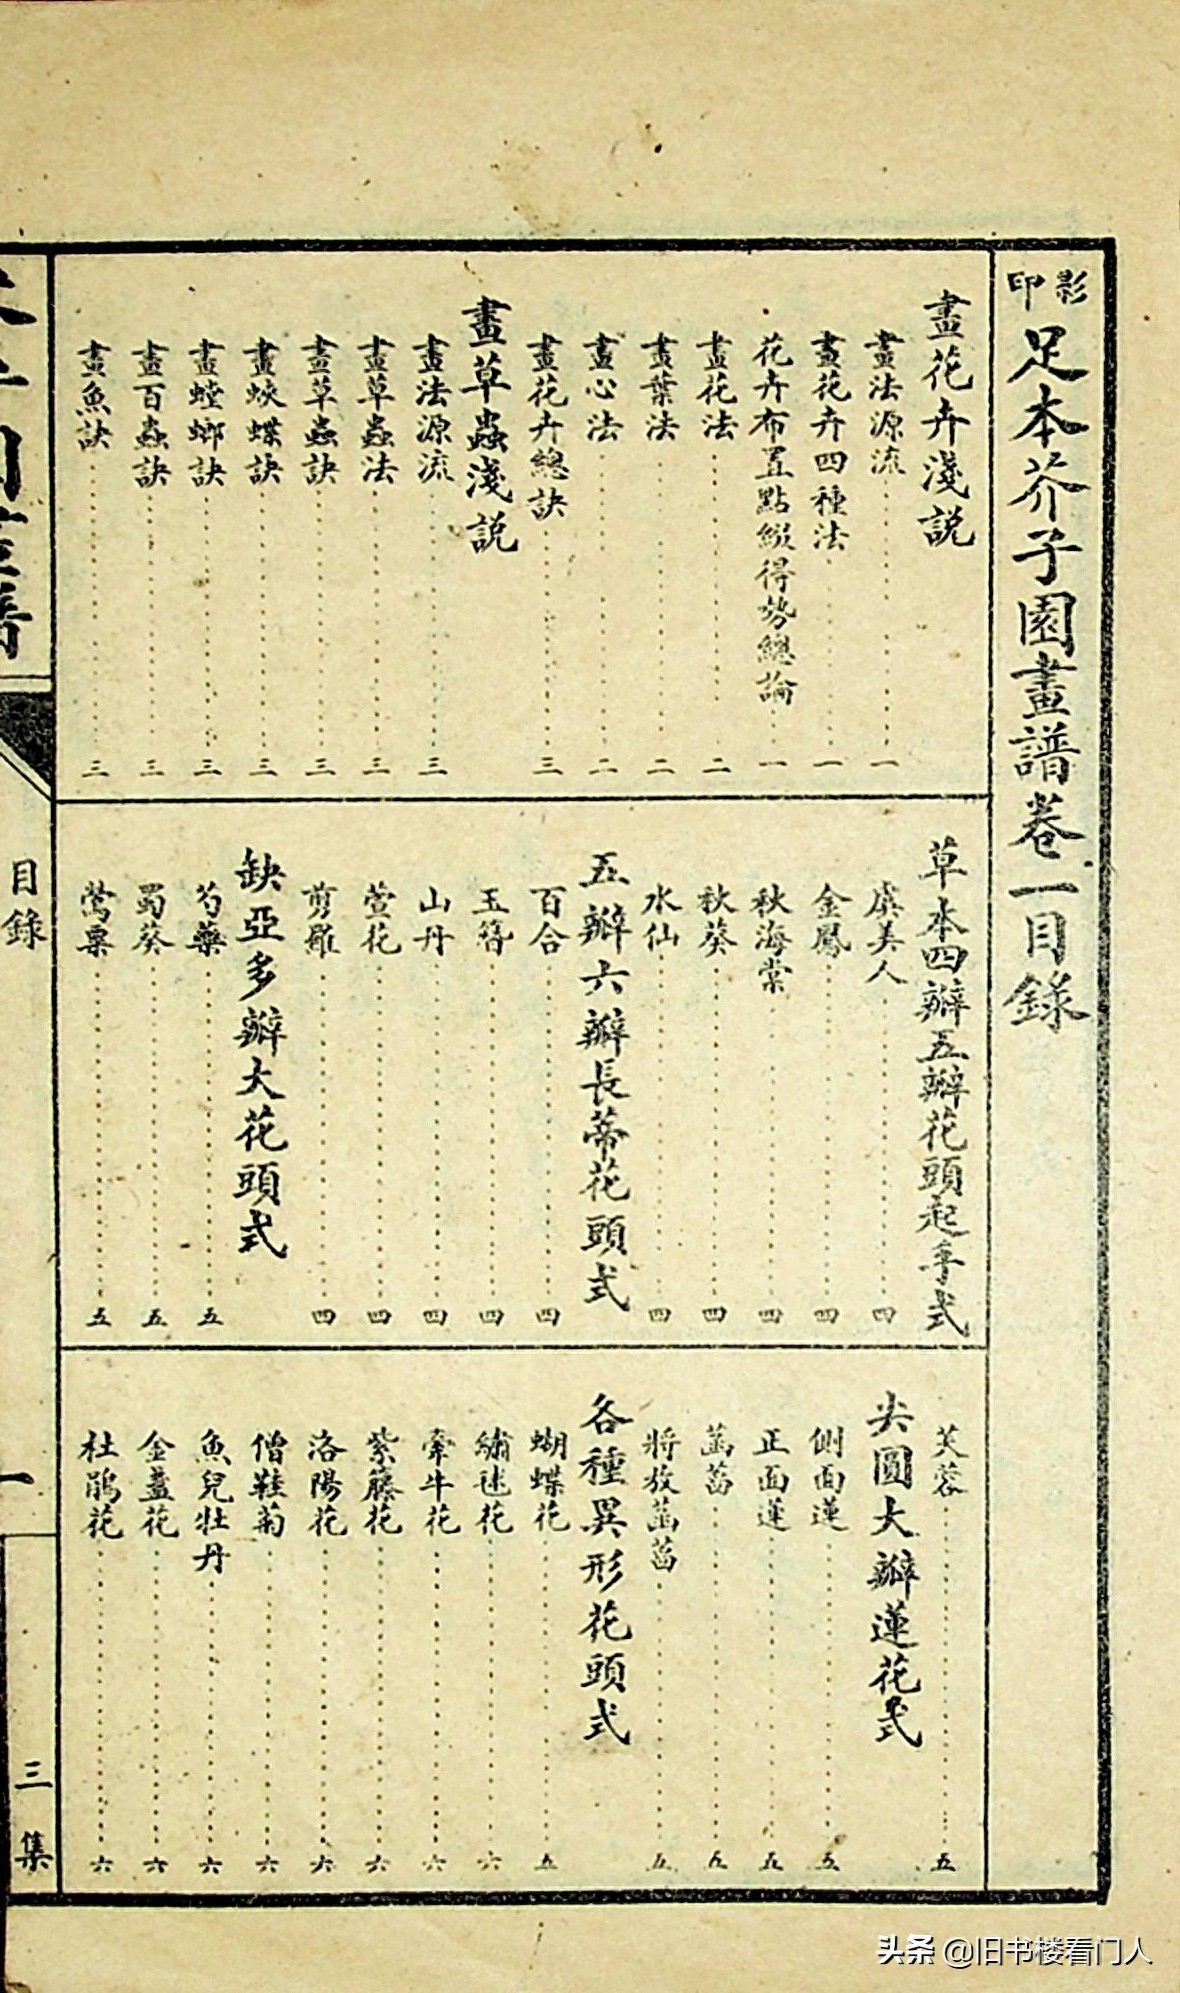 影印足本芥子園畫譜卷一目錄
畫花卉淺説
畫法源流 一
畫花卉四種法 一
花卉布置點綴得勢總論 一
畫花法 二
畫葉法 二
畫心法 二
畫花卉總訣 三
畫草蟲淺説
畫法源流 三
畫草蟲法 三
畫草蟲訣 三
畫蛺蝶訣 三
畫螳螂訣 三
畫百蟲訣 三
畫魚訣 三
草本四瓣五瓣花頭起手式
虞美人 四
金鳳 四
秋海棠 四
秋葵 四
水仙 四
五瓣六瓣長蒂花頭式
百合 四
玉簪 四
山丹 四
萱花 四
剪羅 四
缺亞多瓣大花頭式
芍藥 五
蜀葵 五
鶯粟 五
芙蓉 五
尖圓大瓣蓮花式
側面蓮 五
正面蓮 五
菡萏 五
將放菡萏 五
各種異形花頭式
蝴蝶花 五
繡毬花 六
牽牛花 六
紫藤花 六
洛陽花 六
僧鞋菊 六
魚兒牡丹 六
金盞花 六
杜鵑花 六
目錄
一
三集
头条 @旧书楼看门人